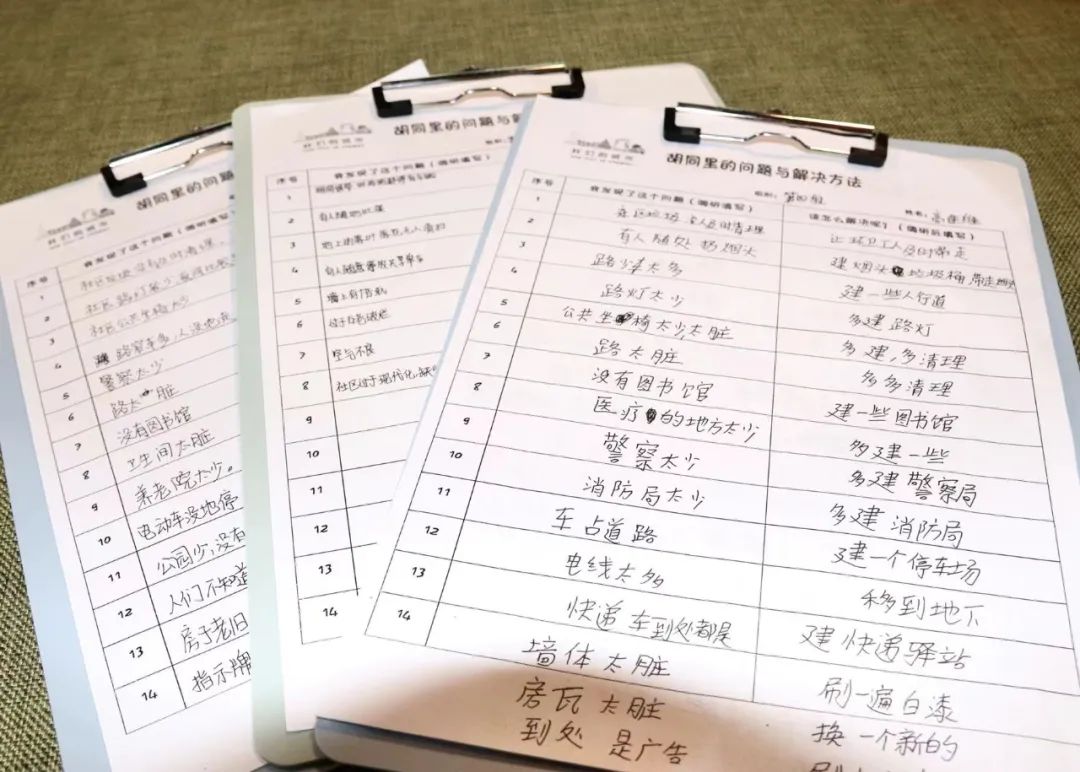 胡同里的问题与解
序号 我发现了这个问题（调研填写）
1
2
3 社区公共坐椅太少
4
5 警察太少
6 路太脏
7 没有图书馆
8 卫生间太脏
9 养老院太少。
10 电动车没地停
11 公园少，没有
12 人们不知道
13 房子老旧
14 指示牌
胡同里的问题与解
序号 我发现了这个问题（调研填写）
1
2 有人随地吐痰
3 地上的落叶
4 有人随意停放共享单车
5 墙上有广告纸
6
7 空气不良
8 社区过于现代化
9
10
11
12
13
14
我们的城市
胡同里的问题与解决方法
组别： 第四组 姓名：
序号 我发现了这个问题（调研填写） 该怎么解决呢？（调研后填写）
1 让环卫工人及时带走
2 有人随处扔烟头 建烟头垃圾桶
3 路障太多 建一些人行道
4 路灯太少 多建路灯
5 公共坐椅太少太脏 多建，多清理
6 路太脏 多多清理
7 没有图书馆 建一些图书馆
8 医疗的地方太少 多建一些
9 警察太少 多建警察局
10 消防局太少 多建消防局
11 车占道路 建一个停车场
12 电线太多 移到地下
13 快递车到处都是 建快递驿站
14 墙体太脏 刷一遍白漆
房瓦太脏 换一个新的
到处是广告